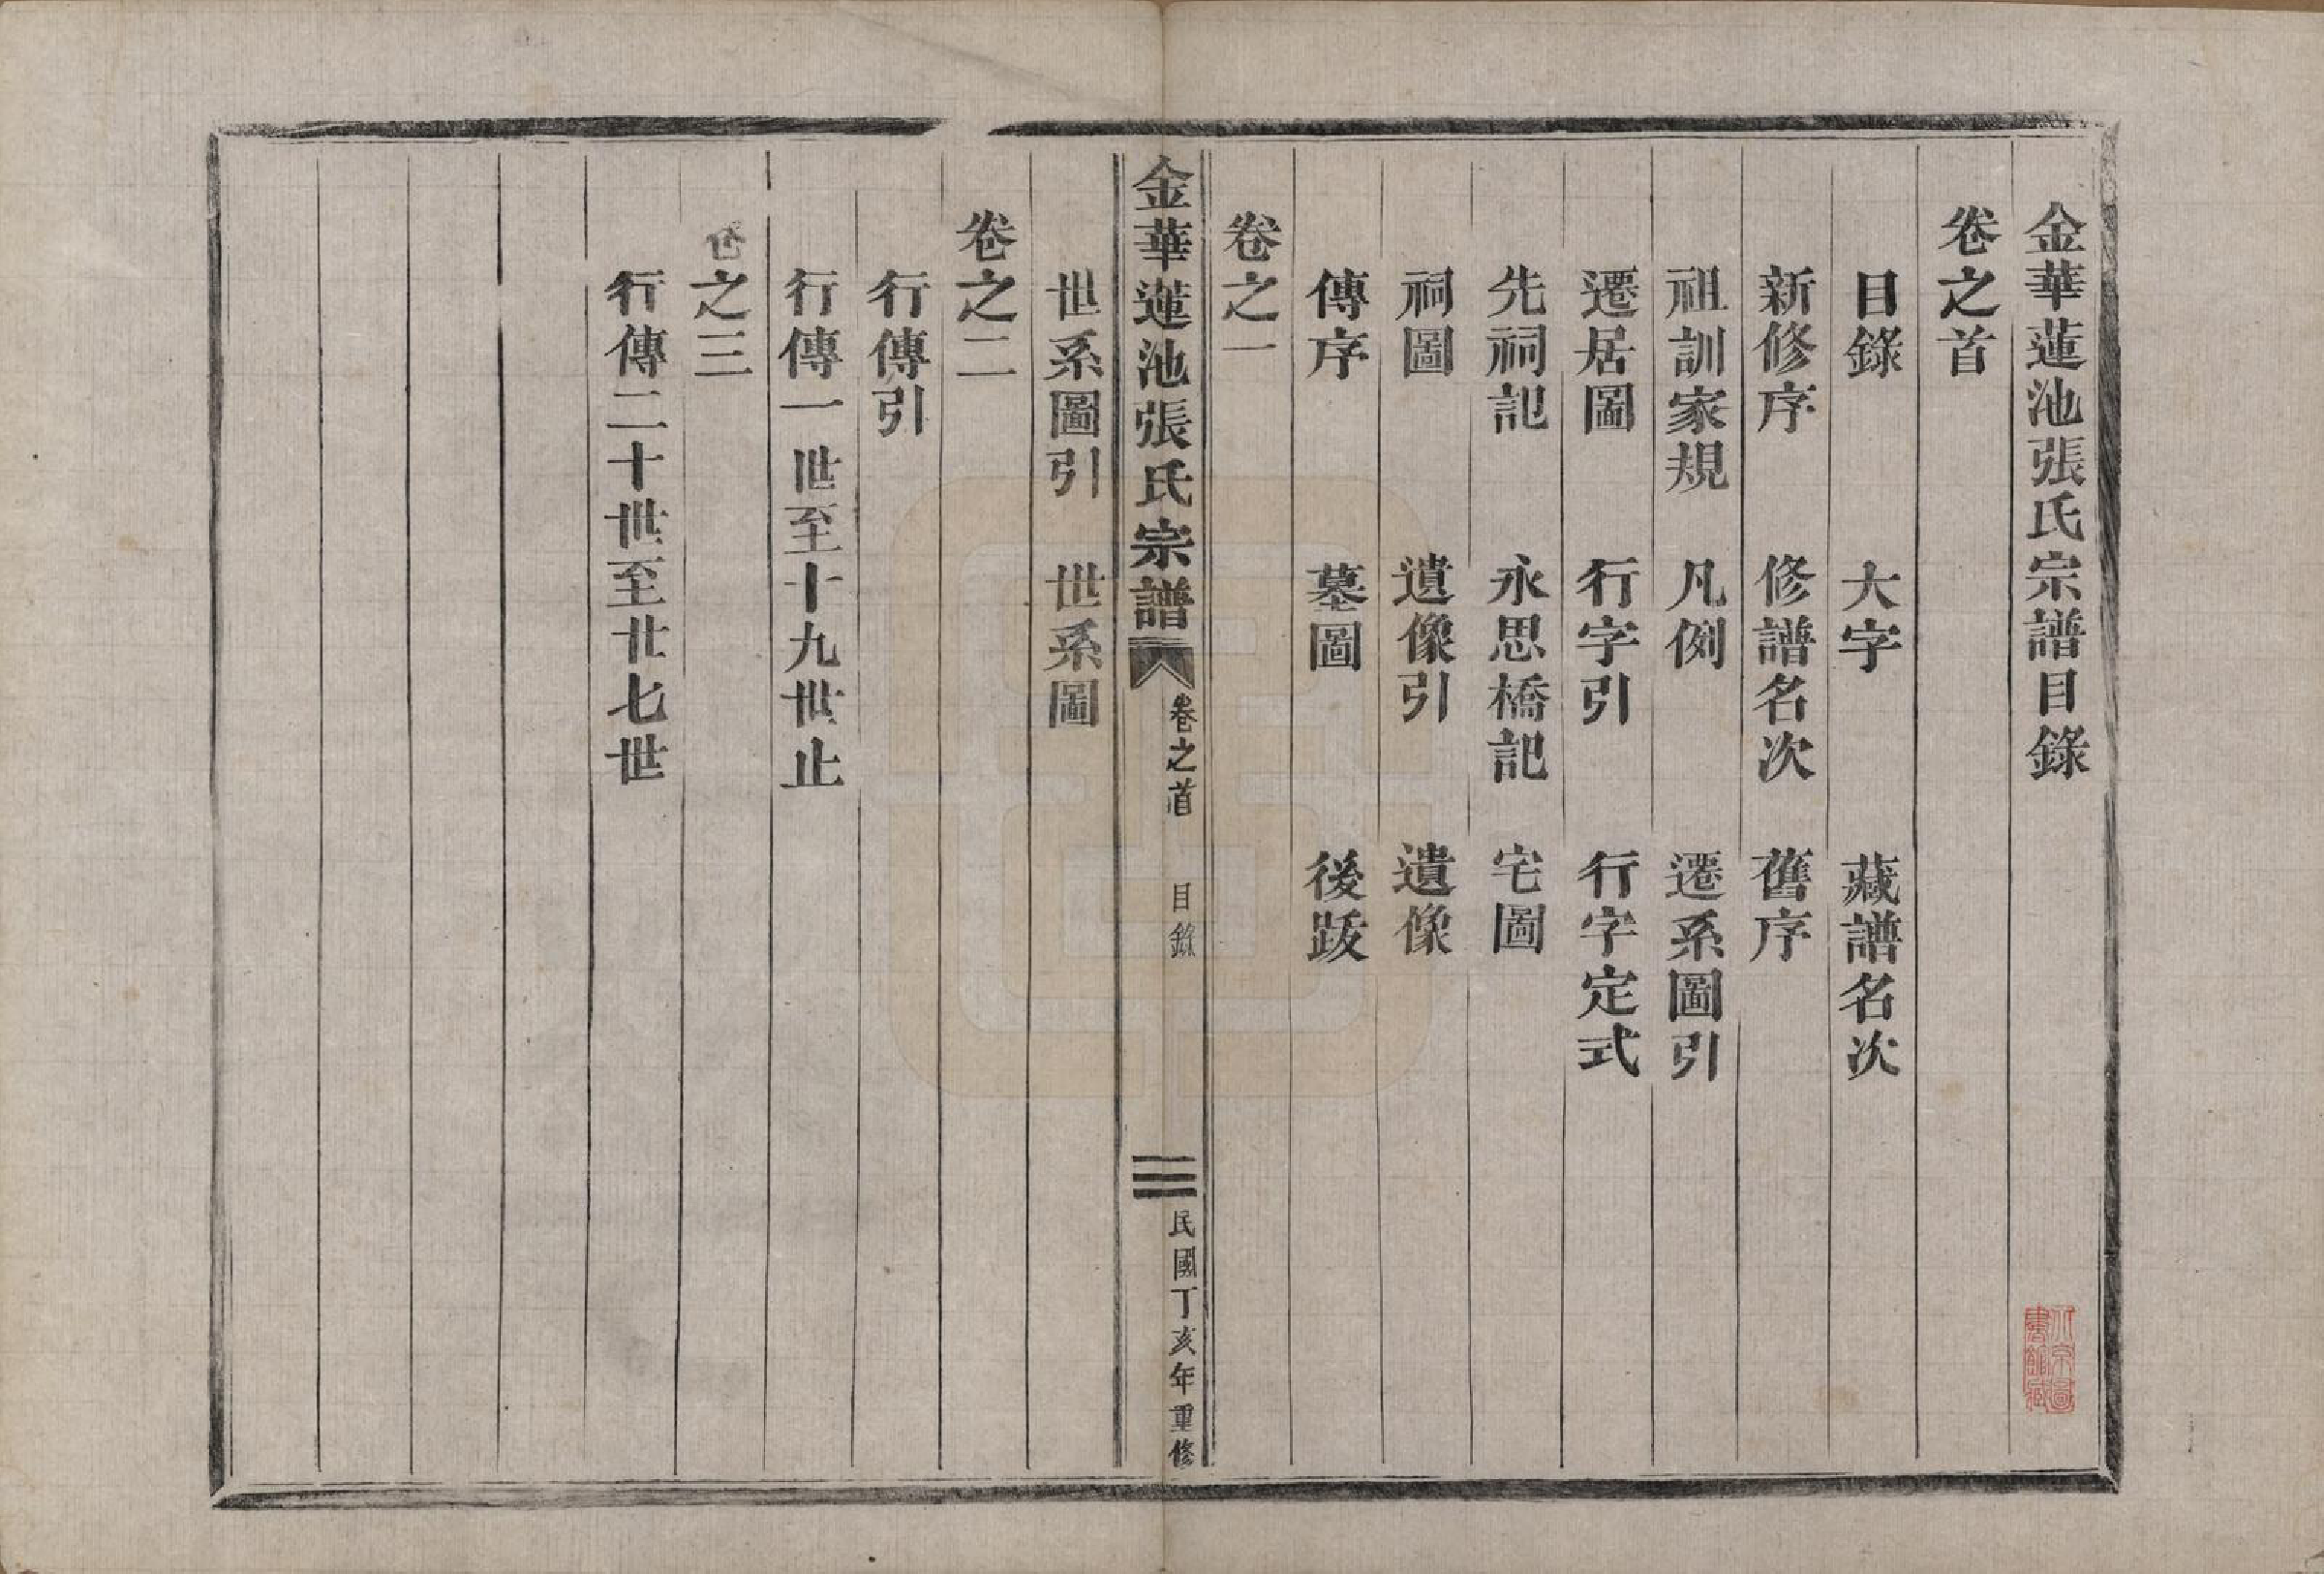 金華蓮池張氏宗譜目錄
卷之首
目錄 大字 藏譜名次
新修序 修譜名次 舊序
祖訓家規 凡例 遷系圖引
遷居圖 行字引 行字定式
先祠記 永思橋記 宅圖
祠圖 遺像引 遺像
傳序 墓圖 後跋
卷之一
金華蓮池張氏宗譜 卷之首 目錄 民國丁亥年重修
世系圖引 世系圖
卷之二
行傳引
行傳一世至十九世止
卷之三
行傳二十世至廿七世
北京圖書館藏